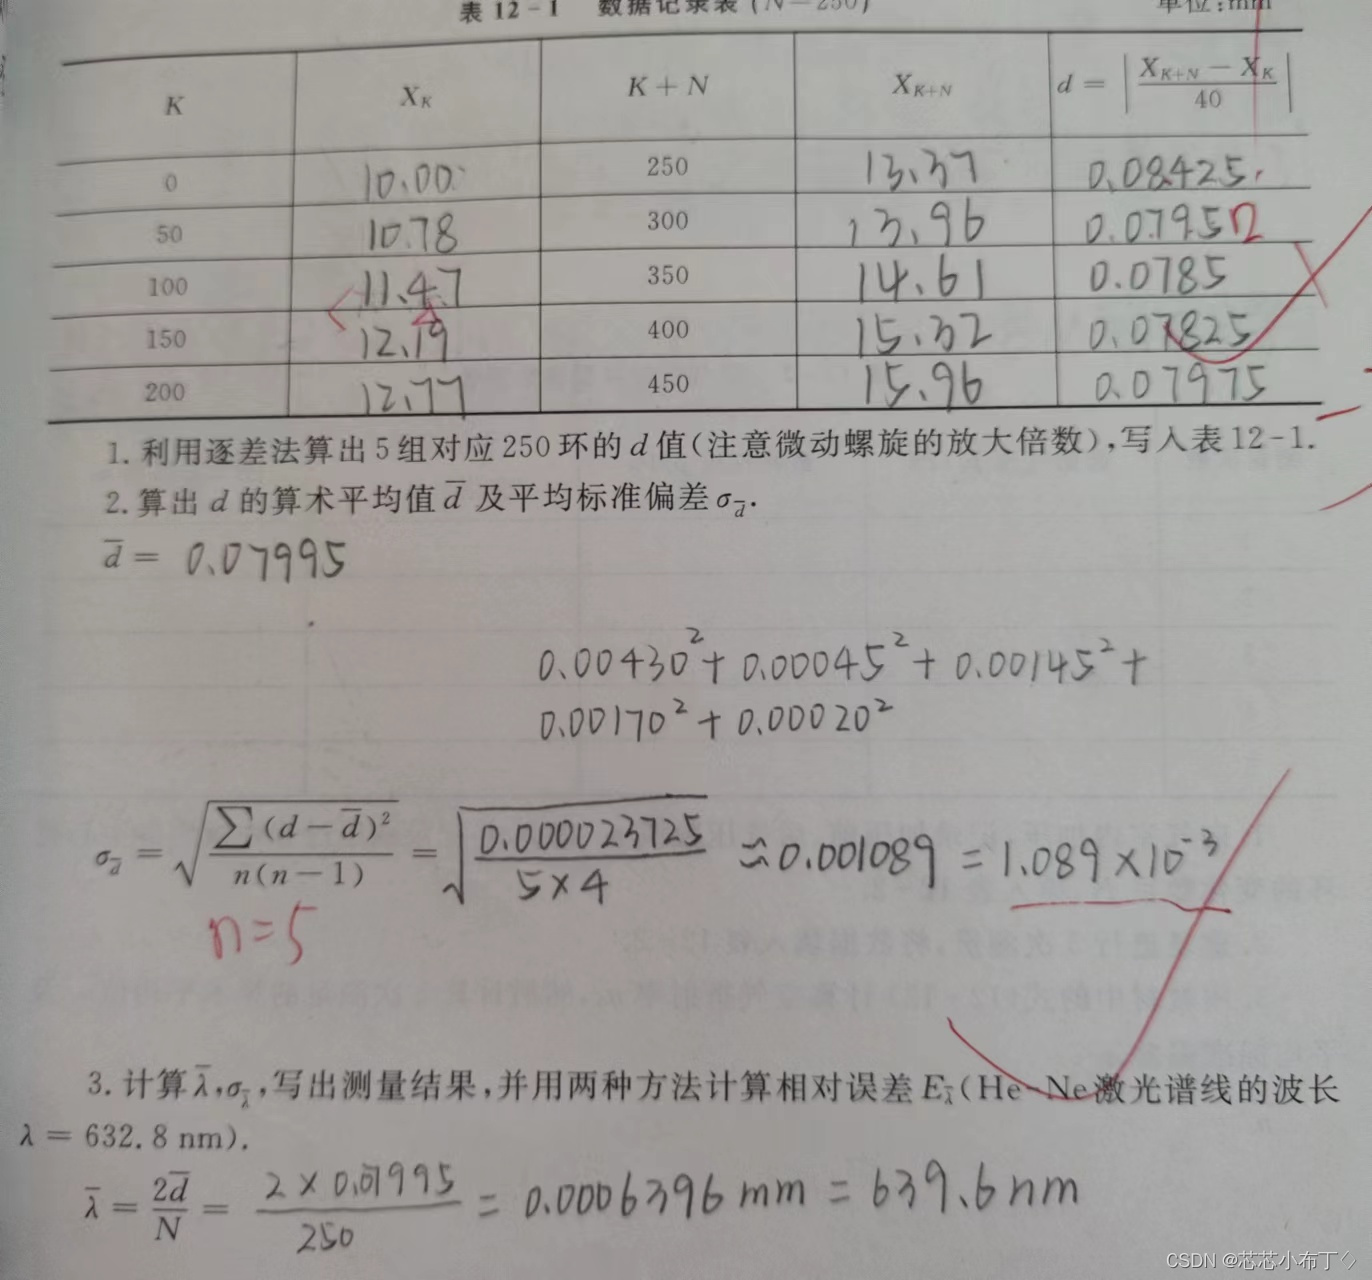 表 12-1 数据记录表 (N=250) 单位:mm
K X_K K+N X_{K+N} d = |(X_{K+N} - X_K)/40|
0 10.00 250 13.37 0.08425
50 10.78 300 13.96 0.0795
100 11.47 350 14.61 0.0785
150 12.19 400 15.32 0.07825
200 12.77 450 15.96 0.07975
1. 利用逐差法算出5组对应250环的d值(注意微动螺旋的放大倍数),写入表12-1.
2. 算出 d 的算术平均值 d̄ 及平均标准偏差 σ_d̄.
d̄ = 0.07995
0.00430² + 0.00045² + 0.00145² +
0.00170² + 0.00020²
σ_d̄ = √(∑(d-d̄)²/n(n-1)) = √(0.000023725/5×4) ≈ 0.001089 = 1.089×10⁻³
n=5
3. 计算 λ̄,σ_λ̄,写出测量结果,并用两种方法计算相对误差 E_λ̄(He-Ne激光谱线的波长
λ = 632.8 nm).
λ̄ = 2d̄/N = 2×0.07995/250 = 0.0006396 mm = 639.6 nm
CSDN @芯芯小布丁◇